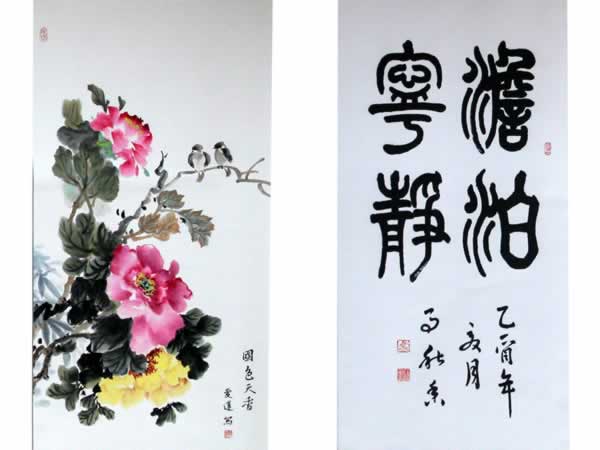 國色天香
愛蓮寫
澹泊
寧靜
乙酉年
夏月